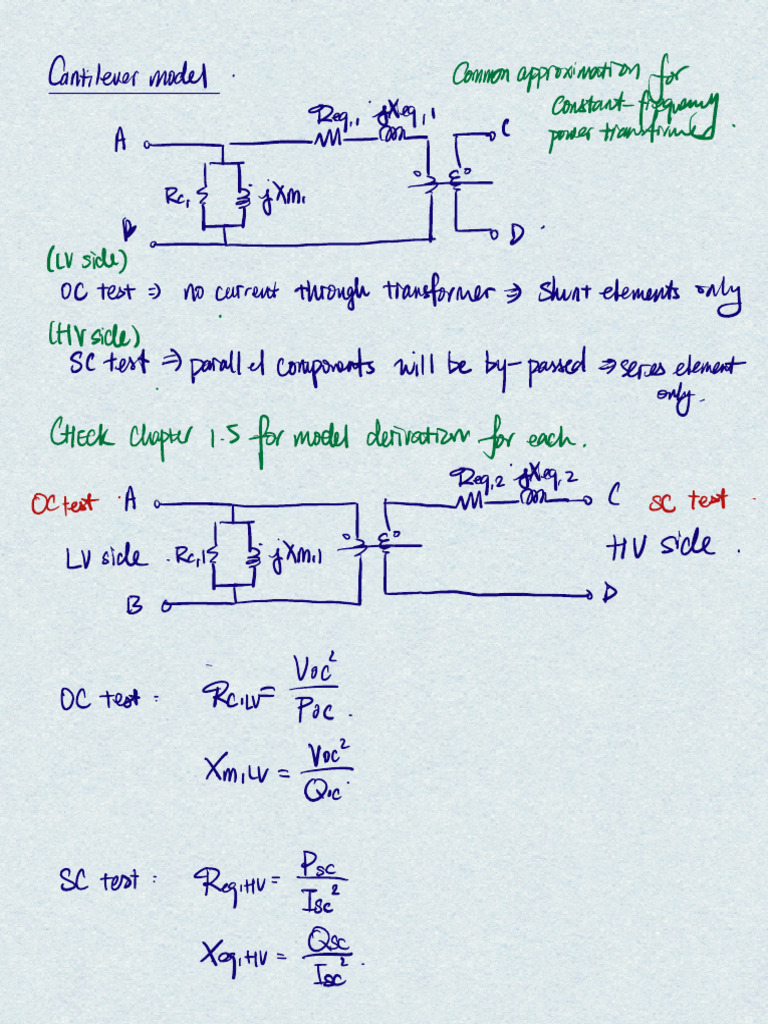 Cantilever model
Common approximation for
Constant-frequency
power transformed.
Req,1 jXeq,1
A
C
Rc,1
jXm,1
B
D.
(LV side)
OC test ⇒ no current through transformer ⇒ Shunt elements only
(HV side)
SC test ⇒ parallel components will be by-passed ⇒ series element
only.
CHECK chapter 1.5 for model derivation for each.
Req,2 jXeq,2
OC test A
C SC test
LV side Rc,1 jXm,1
HV side.
B
D
OC test: Rc,LV = Voc² / Poc.
Xm,LV = Voc² / Qoc.
SC test: Req,HV = Psc / Isc²
Xeq,HV = Qsc / Isc².